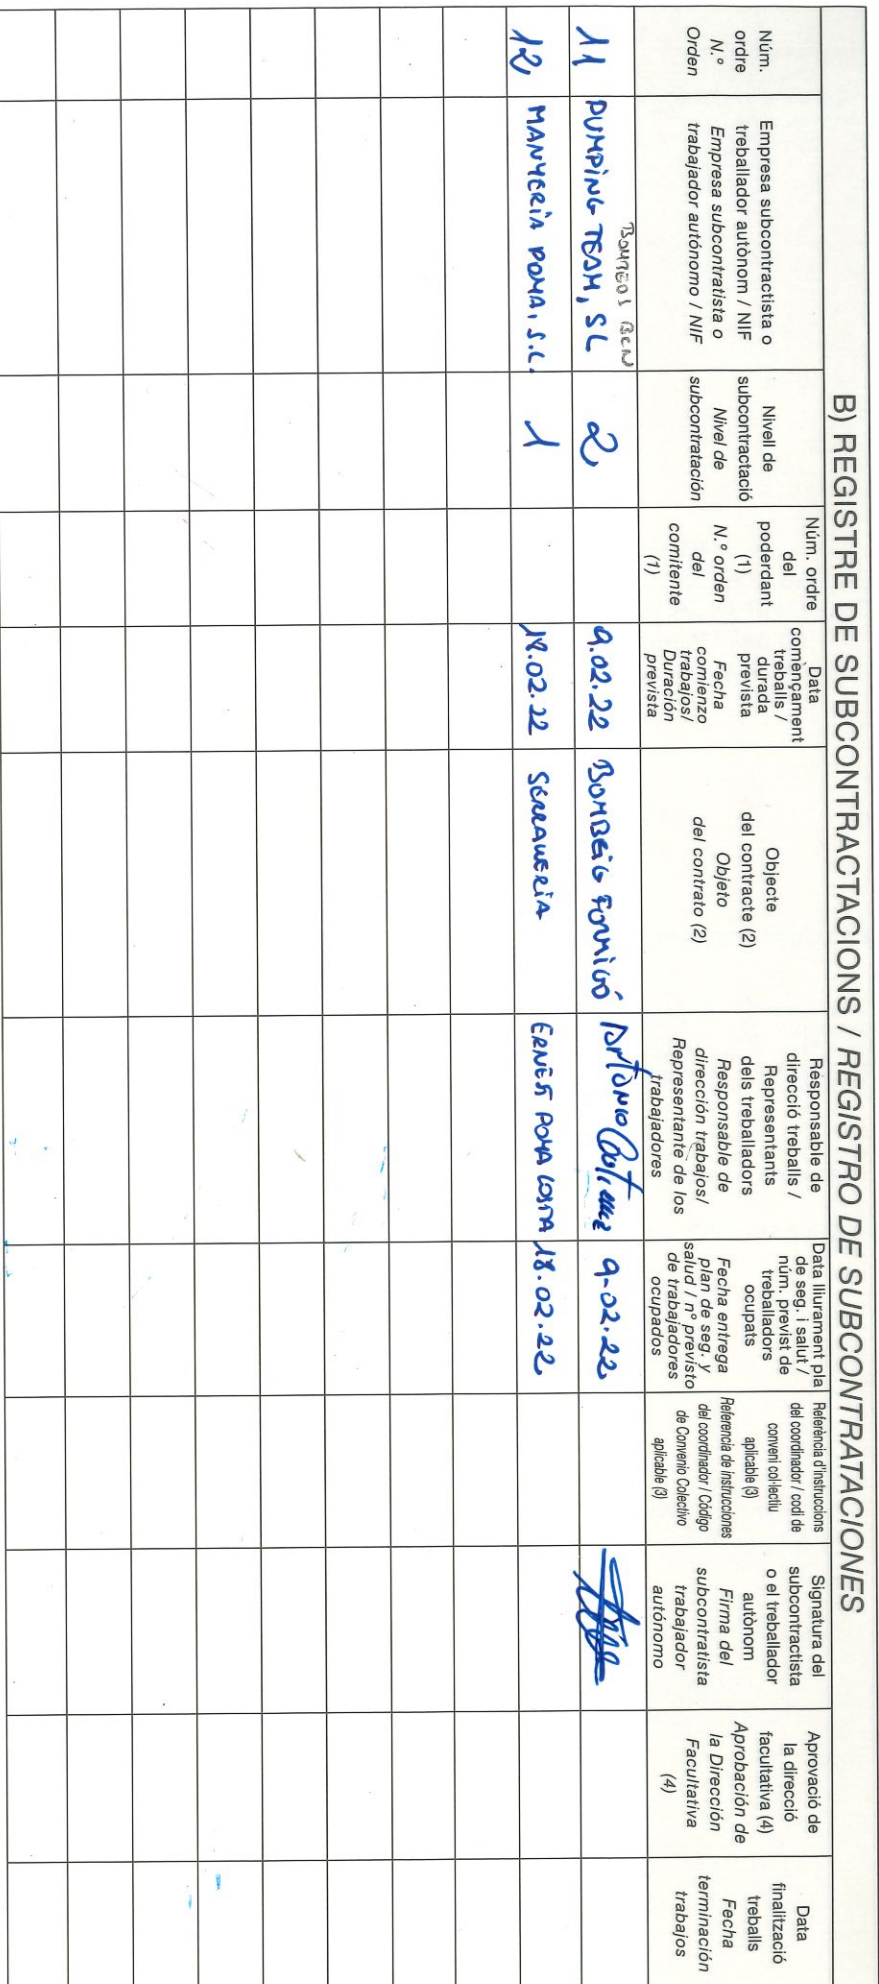 B) REGISTRE DE SUBCONTRACTACIONS / REGISTRO DE SUBCONTRATACIONES
Núm.
ordre
N.º
Orden
Empresa subcontractista o
treballador autònom / NIF
Empresa subcontratista o
trabajador autónomo / NIF
Nivell de
subcontractació
Nivel de
subcontratación
Núm. ordre
del
poderdant
(1)
N.º orden
del
comitente
(1)
Data
començament
treballs /
durada
prevista
Fecha
comienzo
trabajos/
Duración
prevista
Objecte
del contracte (2)
Objeto
del contrato (2)
Responsable de
direcció treballs /
Representants
dels treballadors
Responsable de
dirección trabajos/
Representante de los
trabajadores
Data lliurament pla
de seg. i salut /
núm. previst de
treballadors
ocupats
Fecha entrega
plan de seg. y
salud / nº previsto
de trabajadores
ocupados
Referència d'instruccions
del coordinador / codi de
conveni col·lectiu
aplicable (3)
Referencia de instrucciones
del coordinador / Código
de Convenio Colectivo
aplicable (3)
Signatura del
subcontractista
o el treballador
autònom
Firma del
subcontratista
trabajador
autónomo
Aprovació de
la direcció
facultativa (4)
Aprobación de
la Dirección
Facultativa
(4)
Data
finalització
treballs
Fecha
terminación
trabajos
BOMBEOS BCN
11 PUMPING TEAM, SL 2 9.02.22 BOMBEIG FORMIGÓ ANTONIO 9-02.22
12 MANYERIA POMA, S.L. 1 18.02.22 SERRALLERIA ERNEST POMA COSTA 18.02.22